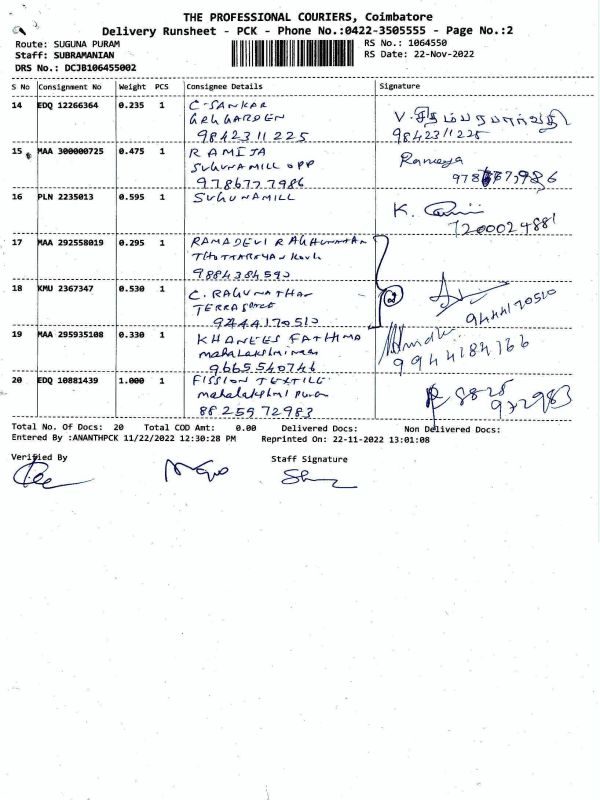 THE PROFESSIONAL COURIERS, Coimbatore
Delivery Runsheet - PCK - Phone No.:0422-3505555 - Page No.:2
Route: SUGUNA PURAM
RS No.: 1064550
Staff: SUBRAMANIAN
RS Date: 22-Nov-2022
DRS No.: DCJB106455002
S No Consignment No Weight PCS Consignee Details Signature
14 EDQ 12266364 0.235 1 C-SANKAR
GRG GARDEN
9842311225
9842311225
15 MAA 300000725 0.475 1 RAMIJA
SUGUNAMILL OPP
9786777986
16 PLN 2235013 0.595 1 SUGUNAMILL
K.
7200024881
17 MAA 292558019 0.295 1 RAMADEVI RAGHUNATHAN
9884384590
18 KMU 2367347 0.530 1 C. RAGUNATHAN
TERRASPACE
9444170510
2
9444170510
19 MAA 295935108 0.330 1 KHANEES FATHIMA
9665540746
9944284766
20 EDQ 10881439 1.000 1 FISSION TEXTILE
mahalakshmi puram
8825972983
8825
972983
Total No. Of Docs: 20 Total COD Amt: 0.00 Delivered Docs: Non Delivered Docs:
Entered By :ANANTHPCK 11/22/2022 12:30:28 PM Reprinted On: 22-11-2022 13:01:08
Verified By Staff Signature